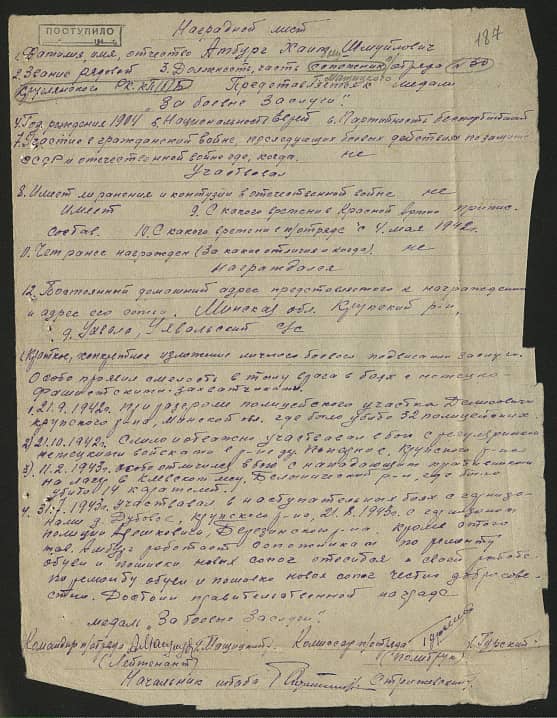 ПОСТУПИЛО
187
Наградной лист
1. Фамилия, имя, отчество Амбург Хаим Шмуйлович
2. Звание рядовой 3. Должность, часть сапожник п/отряда № 30
Крупского РК КП(б)Б Представляется к медали
"За боевые Заслуги".
4. Год рождения 1904 5. Национальность Еврей 6. Партийность беспартийный
7. Участие в гражданской войне, последующих боевых действиях по защите
СССР и отечественной войне где, когда. не
Участвовал
8. Имеет ли ранения и контузии в отечественной войне не
Имеет 9. С какого времени в Красной армии припис.
состав. 10. С какого времени в п/отряде с 4. мая 1942г.
11. Чем ранее награжден (За какие отличия и когда). не
Награждался
12. Постоянный домашний адрес представляемого к награждению
и адрес его семьи. Минская обл. Крупский р-н,
д. Ухвала, Ухвальский с/с
Краткое, конкретное изложение личного боевого подвига или заслуги.
Особо проявил смелость в тылу врага в боях с немецко-
фашистскими захватчиками.
1. 21.9.1942г. при разгроме полицейского участка
Крупского р-на, Минской обл. где было убито 32 полицейских.
2) 21.10.1942г. Смело и отважно участвовал в бою с регулярными
немецкими войсками в р-не д. Крупского р-на
3) 11.2.1943г. особо отличился в бою с нападающим противником
на лагерь в лесу, Белыничский р-н, где было
убито 14 карателей.
4. 31.7.1943г. Участвовал в наступательных боях с гарнизо-
нами д. Дубовое, Крупского р-на, 21.8.1943г. с гарнизоном
полиции Березинского р-на. Кроме этого
тов. Амбург работает сапожником по ремонту
обуви и пошивки новых сапог относится к своей работе
по ремонту обуви и пошивке новых сапог честно добросове-
стно. Достоин правительственной награды
медали "За боевые Заслуги".
Командир п/отряда Комиссар п/отряда /Гурский/
(Лейтенант) (Политрук)
Начальник штаба